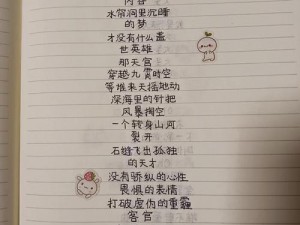 内容
水帘洞里沉睡
的梦
才没有什么盖
世英雄
那天宫
穿越九霄时空
等谁来天摇地动
深海里的针把
风暴掏空
一个转身山河
裂开
石缝飞出孤独
的天才
没有骄纵的心性
畏惧的表情
打破虚伪的重霾
客官